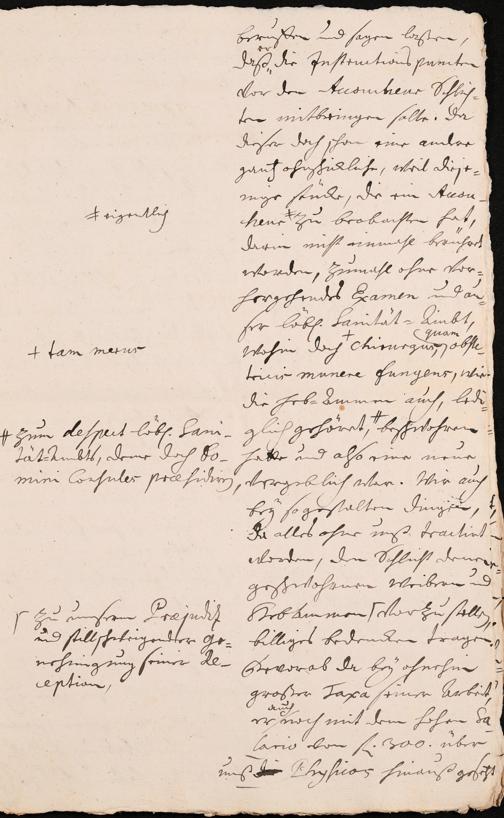 beruffen und sagen laßen,
daß er die Instructions puncten
vor den Accoucheur Schlich-
ten mitbringen solle. Da
dieser doch schon eine andre
gantz ohnschickliche, weil dieje-
nige stücke, die ein Accou-
cheur ‡ zu beobachten hat,
darin nicht einmahl berühret
worden, zumahl ohne vor-
hergehendes Examen und an
löbl. Sanität-Ambt,
wohin doch + Chirurgus, quam obste-
tricis munere fungens, wie
die Heb-Ammen auch, ledi-
glich gehöret, # beschwohren
habe und also eine neue
vergeblich war. Wir auch
bey so gestalten dingen,
da alles ohne unß tractirt
worden, den Schlicht denen
geschwohrnen Weibern und
Heb Ammen ⌈ vor zu stellen
billiges bedencken tragen.
Bevorab da bey ohnehin
großer Taxa seiner Arbeit,
er auch noch mit dem hohen Sa-
lario von f. 300. über
unß Physicos hinauß gesetzt
‡ eigentlich
+ tam merus
# zum despect löbl. Sani-
tät-Ambts, deme doch Do-
mini Consules praesidiren,
⌈ zu unserm Praejudiz
und stillschweigender ge-
nehmigung seiner Re-
ception,